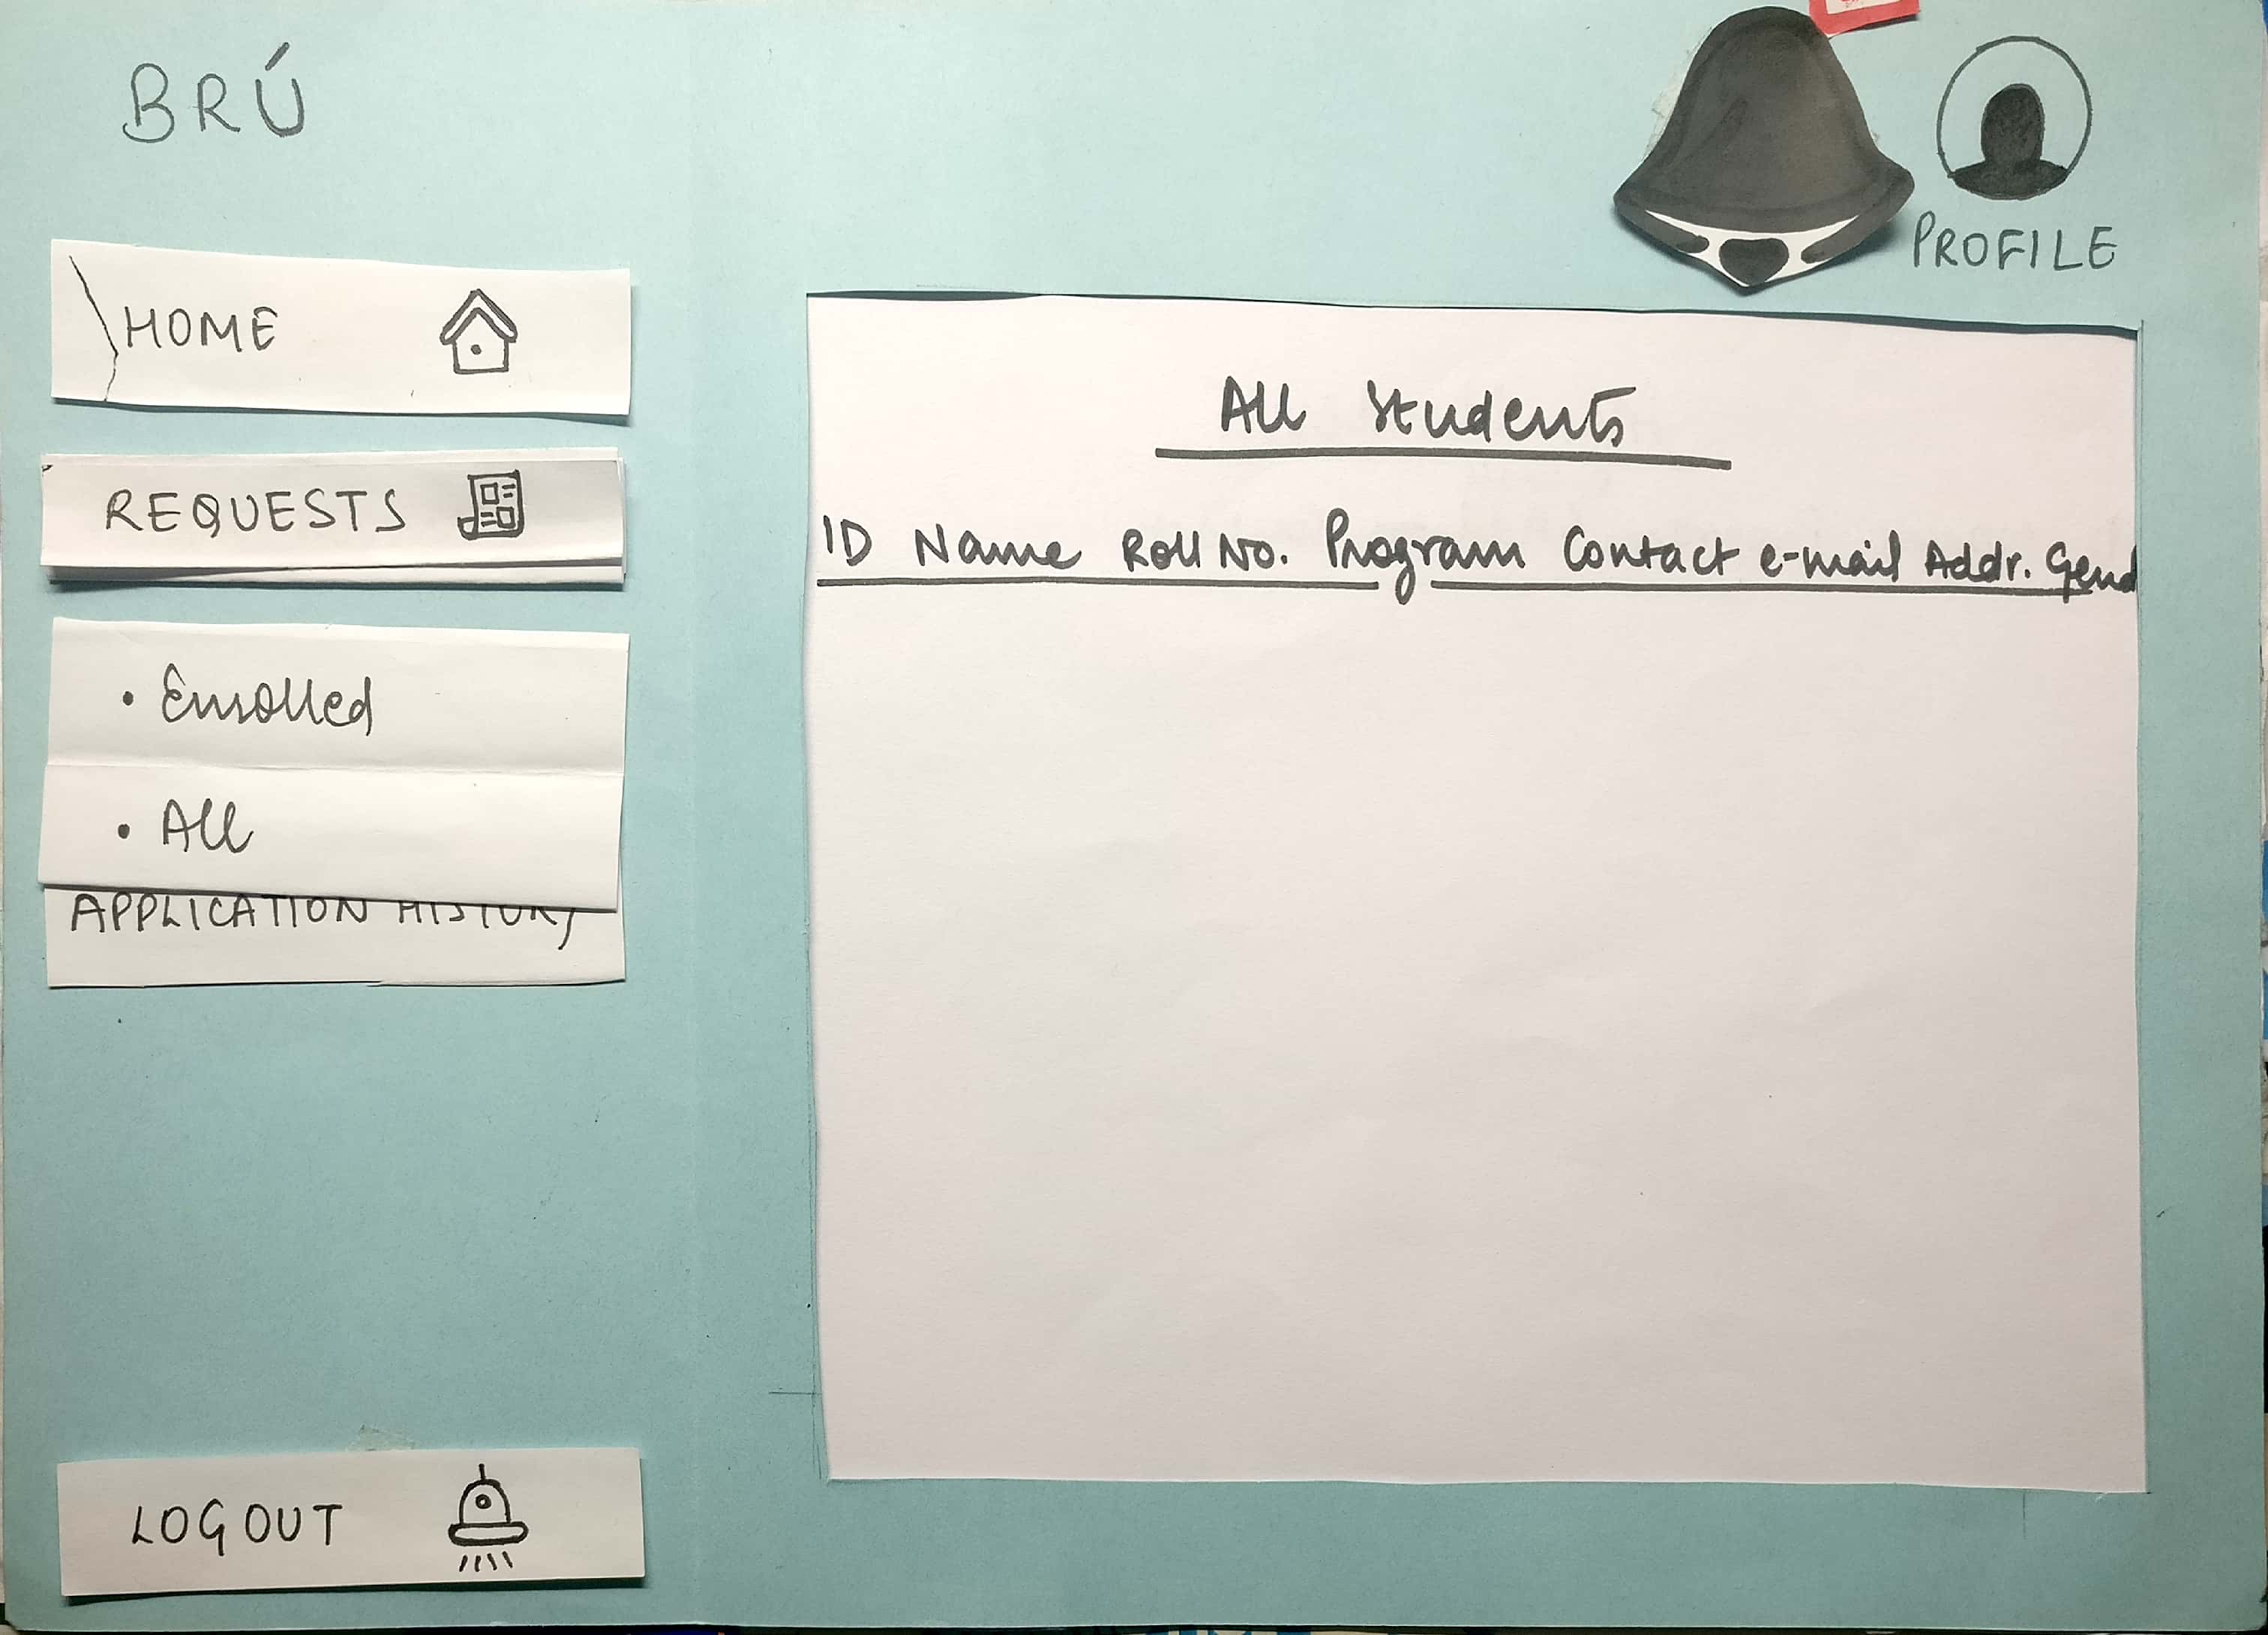 BRÚ
PROFILE
HOME
REQUESTS
• Enrolled
• All
APPLICATION HISTORY
LOGOUT
All Students
ID Name Roll No. Program Contact e-mail Addr. Gend